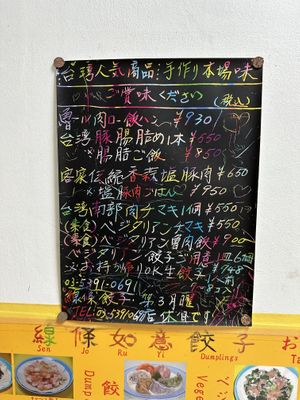 台湾人気商品手作り本場味
ご賞味ください (税込)
魯ールー肉ロー飯ハン ¥930
台湾豚腸詰め1本 ¥550
腸詰ご飯 ¥850
客家伝統香 塩豚肉 ¥660
塩豚肉ごはん ¥950
台湾南部肉チマキ1個 ¥550
(素食)ベジタリアンチマキ ¥550
(素食)ベジタリアン魯肉飯 ¥900
ベジタリアン餃子ご用意 1皿6個
お持帰りOK生餃子 ¥748
03-5391-0691
線條餃子 第3月曜
TEL:03-5391-0691 店休日です
線條如意餃子 お
Sen Jo Ru Yi Dumplings Ta
Dump
餃
Vege
ベジ